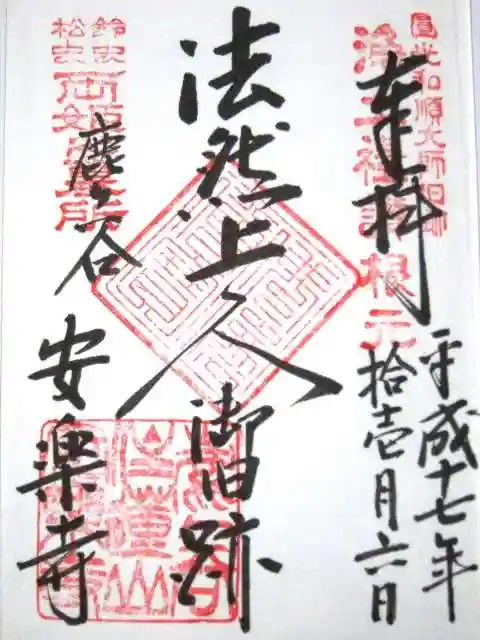 圓光和順大師旧跡
浄土礼讃根元
奉拝
平成十七年
拾壱月六日
法然上人
御旧跡
鈴虫
松虫
両姫
鹿ヶ谷
安楽寺